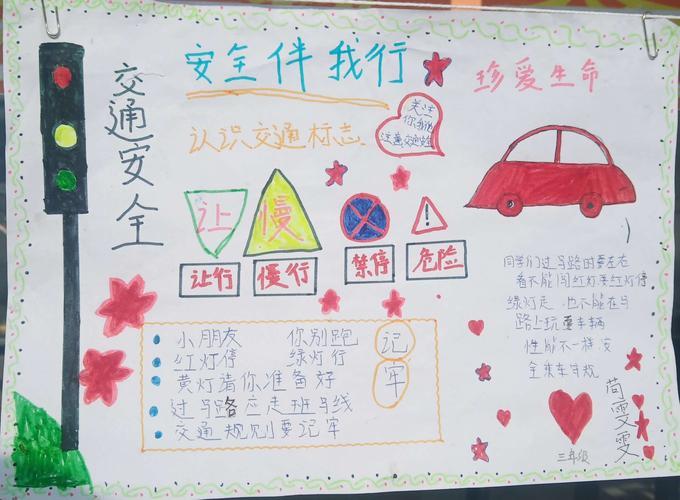 交通安全
安全伴我行
珍爱生命
认识交通标志
关注
你我他
注意交通安全
让
慢
让行
慢行
禁停
!
危险
小朋友 你别跑
红灯停 绿灯行
黄灯请你准备好
过马路应走班马线
交通规则要记牢
记
牢
同学们过马路时要左右
看不能闯红灯要红灯停
绿灯走 也不能在马
路上玩耍车辆
性能不一样 安
全乘车守规
三年级
苟雯雯